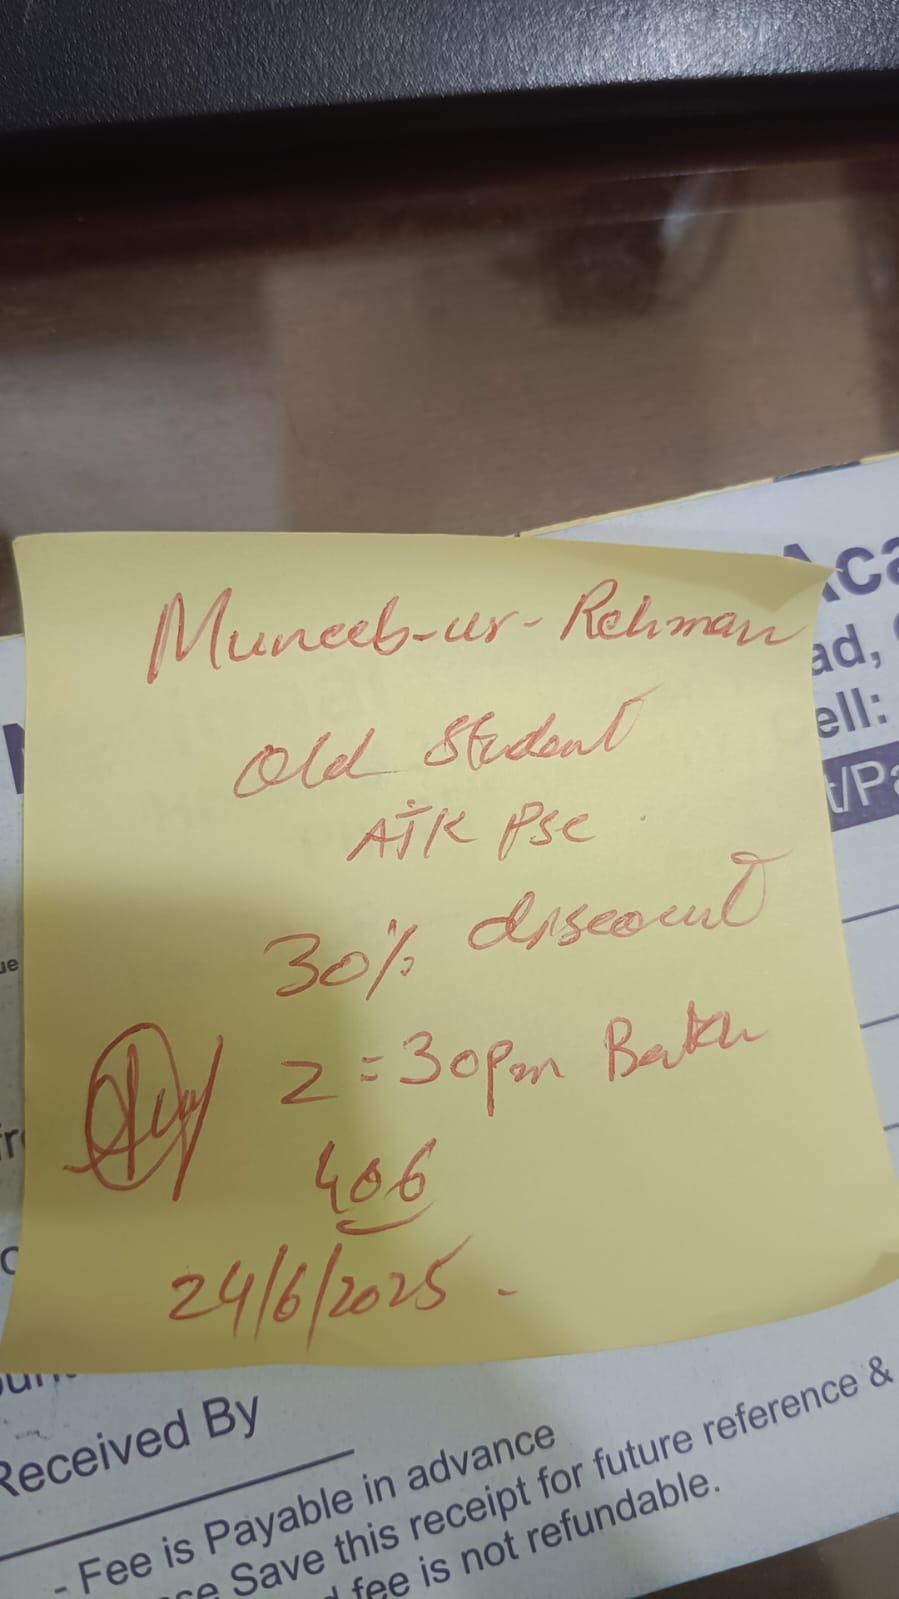 Muneeb-ur-Rehman
Old Student
AJK PSC
30% discount
2=30pm Batch
406
24/6/2025
Received By
- Fee is Payable in advance
Save this receipt for future reference &
fee is not refundable.